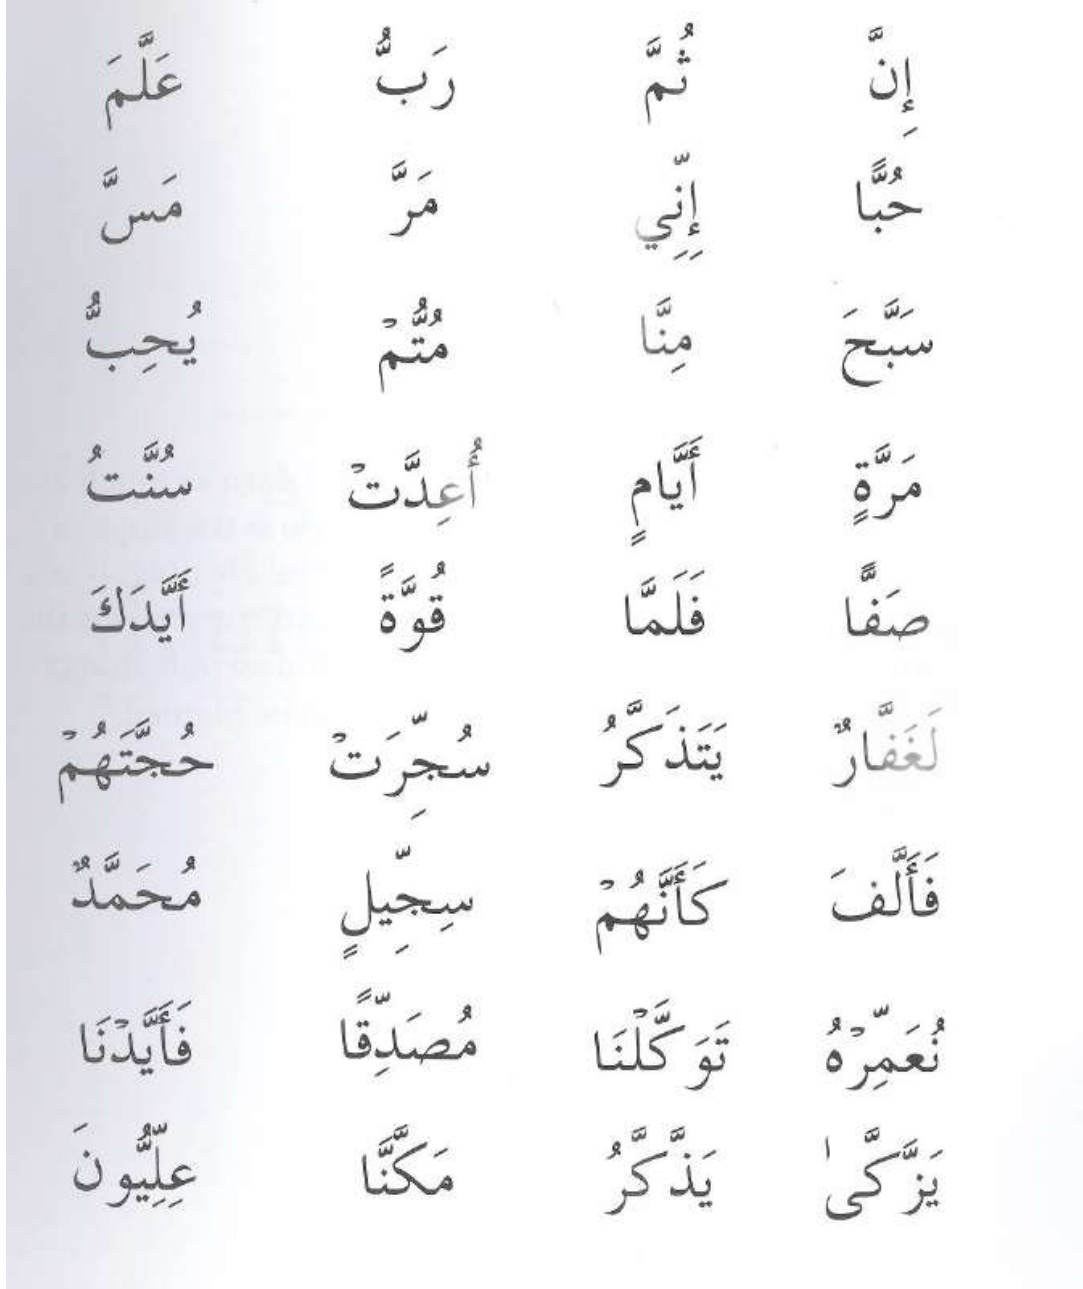 إِنَّ ثُمَّ رَبُّ عَلَّمَ
حُبًّا إِنِّي مَرَّ مَسَّ
سَبَّحَ مِنَّا مُتُّمْ يُحِبُّ
مَرَّةٍ أَيَّامٍ أُعِدَّتْ سُنَّتُ
صَفًّا فَلَمَّا قُوَّةً أَيَّدَكَ
لَغَفَّارٌ يَتَذَكَّرُ سُجِّرَتْ حُجَّتَهُمْ
فَأَلَّفَ كَأَنَّهُمْ سِجِّيلٍ مُحَمَّدٌ
نُعَمِّرْهُ تَوَكَّلْنَا مُصَدِّقًا فَأَيَّدْنَا
يَزَّكَّىٰ يَذَّكَّرُ مَكَّنَّا عِلِّيُّونَ